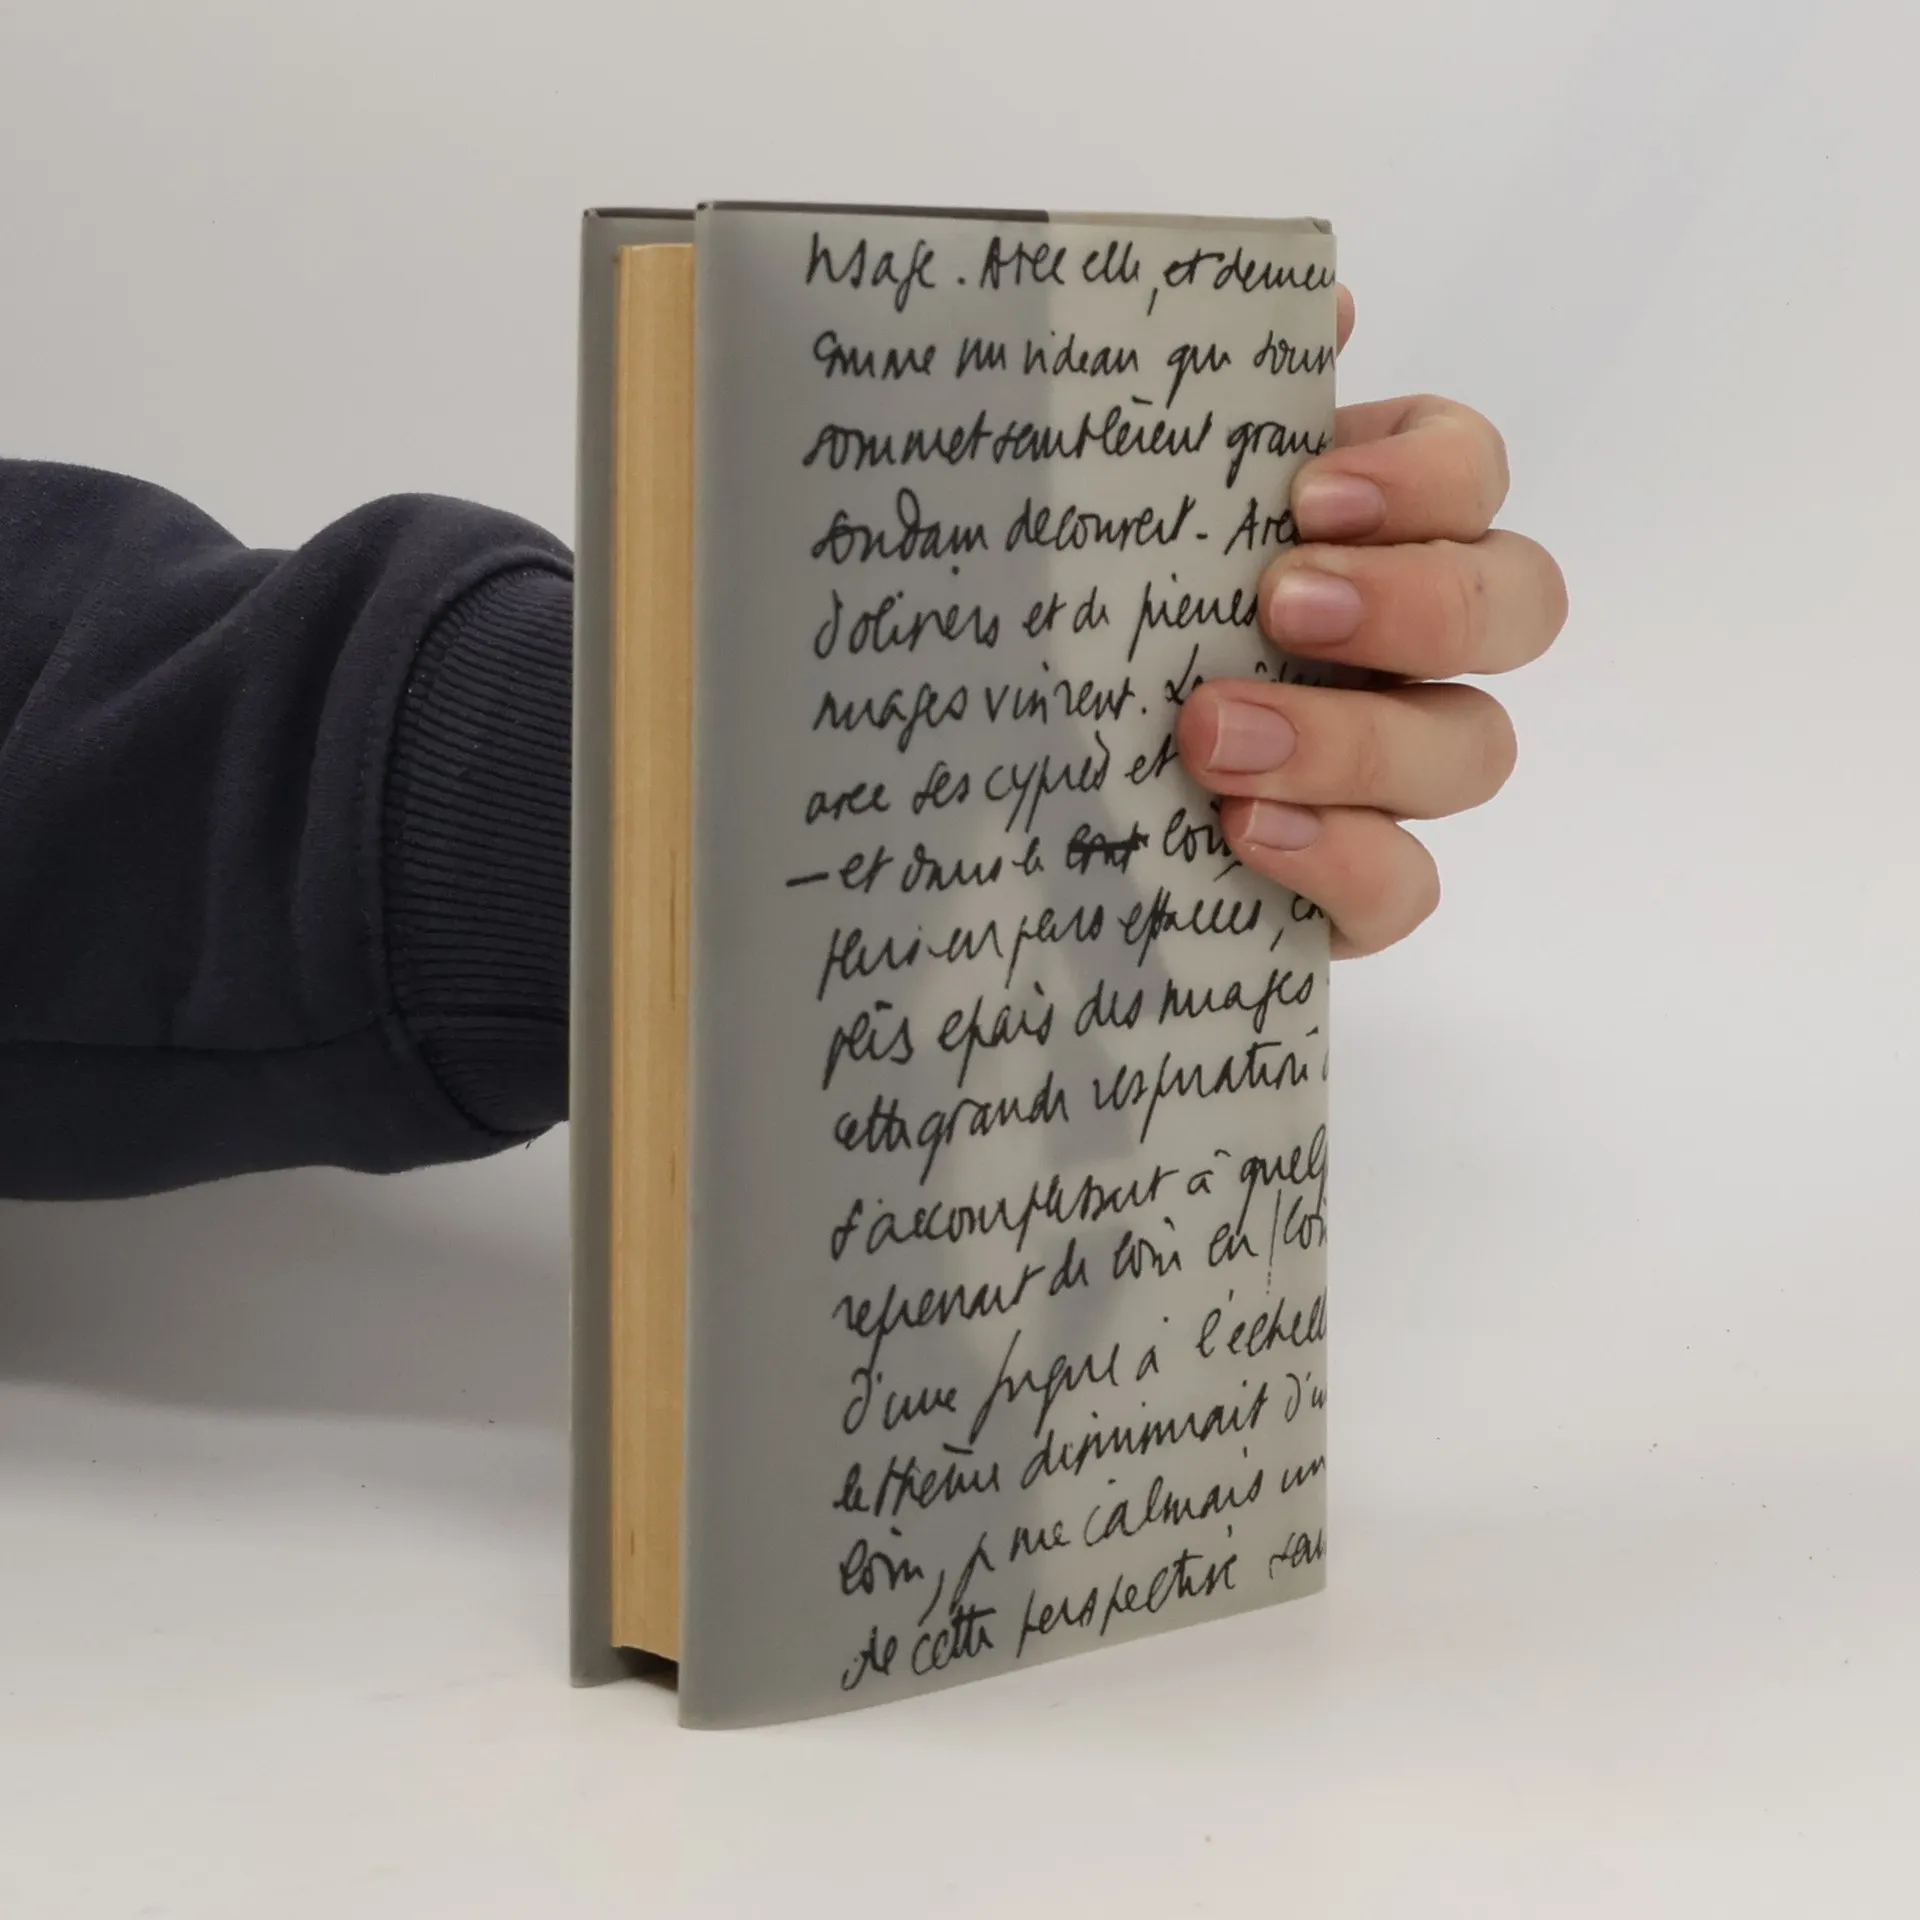 visage. Avec elle, et demeu
comme un rideau qui s'ouv
sommet semblèrent grand
soudain découvert. Avec
d'oliviers et de pierres
nuages vinrent. Le
avec ses cyprès et
— et dans le loin
plus en plus effacées, en
plis épais des nuages
cette grande respiration
s'accomplissait à quelq
reprenait de loin en loin
d'une fugue à l'échell
le thème diminuait d'u
loin, je me calmais un
de cette perspective san